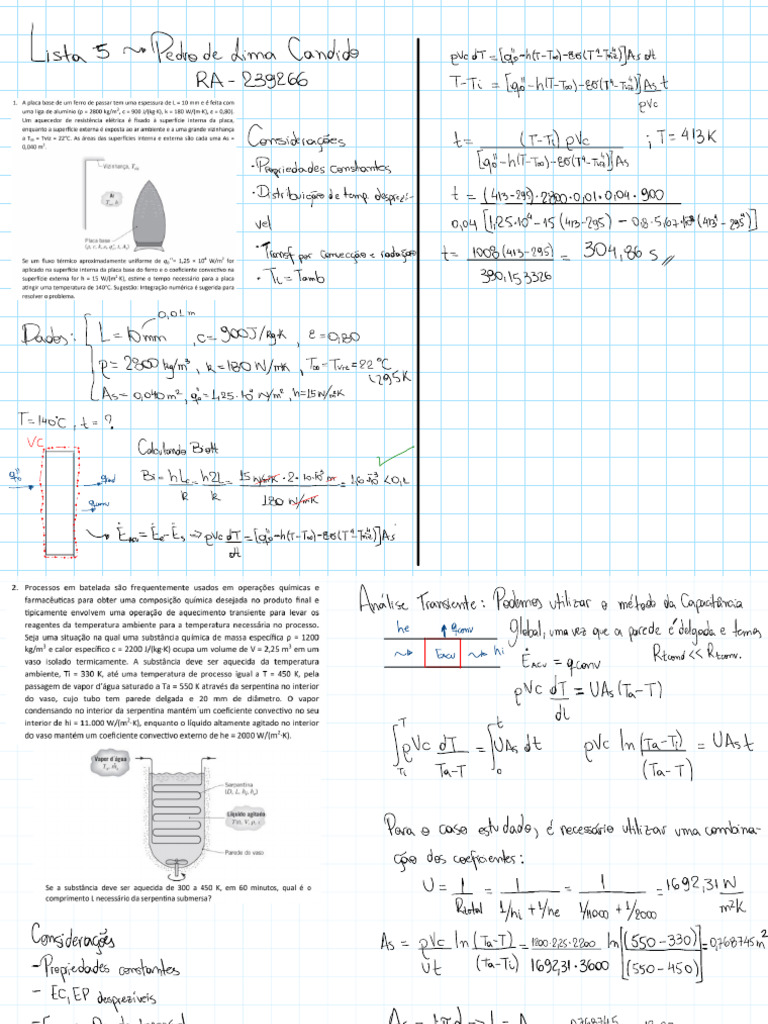 Lista 5 ~> Pedro de Lima Candido
RA - 239266
1. A placa base de um ferro de passar tem uma espessura de L = 10 mm e é feita com
uma liga de alumínio (ρ = 2800 kg/m³, c = 900 J/(kg·K), k = 180 W/(m·K), ε = 0,80).
Um aquecedor de resistência elétrica é fixado à superfície interna da placa,
enquanto a superfície externa é exposta ao ar ambiente e a uma grande vizinhança
a T∞ = Tviz = 22°C. As áreas das superfícies interna e externa são cada uma As =
0,040 m².
Vizinhança, Tviz
Ar
T∞, h
Placa base
Se um fluxo térmico aproximadamente uniforme de q₀'' = 1,25 × 10⁴ W/m² for
aplicado na superfície interna da placa base do ferro e o coeficiente convectivo na
superfície externa for h = 15 W/(m²·K), estime o tempo necessário para a placa
atingir uma temperatura de 140°C. Sugestão: Integração numérica é sugerida para
resolver o problema.
Considerações
• Propriedades constantes
• Distribuição de temp. desprezí-
vel
• Transf por convecção e radiação
• Ti = Tamb
Dados:
0,01 m
L = 10 mm , c = 900 J/kg·K , ε = 0,80
ρ = 2800 kg/m³ , k = 180 W/mK , T∞ = Tviz = 22 °C
↳ 295 K
As = 0,040 m² , q₀'' = 1,25·10⁴ W/m² , h = 15 W/m²K
T = 140°C , t = ?
VC
q₀''
qrad
qconv
Calculando Biot
Bi = hLc/k = h2L/k = 15 W/m²K · 2 · 10·10⁻³ m / 180 W/mK = 1,6·10⁻³ < 0,1
Ėacu = Ėe - Ės => ρVc dT/dt = [q₀'' - h(T-T∞) - εσ(T⁴-Tviz⁴)]As
ρVc dT = [q₀'' - h(T-T∞) - εσ(T⁴-Tviz⁴)] As dt
T - Ti = [q₀'' - h(T-T∞) - εσ(T⁴-Tviz⁴)] As t / ρVc
t = (T-Ti) ρVc / [q₀'' - h(T-T∞) - εσ(T⁴-Tviz⁴)]As ; T = 413 K
t = (413-295)·2800·0,01·0,04·900 / 0,04[1,25·10⁴ - 15(413-295) - 0,8·5,67·10⁻⁸(413⁴-295⁴)]
t = 1008(413-295) / 390,153326 = 304,86 s //
2. Processos em batelada são frequentemente usados em operações químicas e
farmacêuticas para obter uma composição química desejada no produto final e
tipicamente envolvem uma operação de aquecimento transiente para levar os
reagentes da temperatura ambiente para a temperatura necessária no processo.
Seja uma situação na qual uma substância química de massa específica ρ = 1200
kg/m³ e calor específico c = 2200 J/(kg·K) ocupa um volume de V = 2,25 m³ em um
vaso isolado termicamente. A substância deve ser aquecida da temperatura
ambiente, Ti = 330 K, até uma temperatura de processo igual a T = 450 K, pela
passagem de vapor d'água saturado a Ta = 550 K através da serpentina no interior
do vaso, cujo tubo tem parede delgada e 20 mm de diâmetro. O vapor
condensando no interior da serpentina mantém um coeficiente convectivo no seu
interior de hi = 11.000 W/(m²·K), enquanto o líquido altamente agitado no interior
do vaso mantém um coeficiente convectivo externo de he = 2000 W/(m²·K).
Vapor d'água
Serpentina
Líquido agitado
Parede do vaso
Se a substância deve ser aquecida de 300 a 450 K, em 60 minutos, qual é o
comprimento L necessário da serpentina submersa?
Considerações
- Propriedades constantes
- EC, EP desprezíveis
Análise Transiente: Podemos utilizar o método da Capacitância
Global, uma vez que a parede é delgada e temos
Rtcond << Rtconv.
he
qconv
Eacu
hi
Ėacu = qconv
ρVc dT/dt = UAs(Ta-T)
∫ρVc dT/(Ta-T) = ∫UAs dt
ρVc ln (Ta-Ti)/(Ta-T) = UAs t
Para o caso estudado, é necessário utilizar uma combina-
ção dos coeficientes:
U = 1/Rtotal = 1/(1/hi + 1/he) = 1/(1/11000 + 1/2000) = 1692,31 W/m²K
As = ρVc/Ut ln (Ta-T)/(Ta-Ti) = 1200·2,25·2200 / 1692,31·3600 ln[(550-330)/(550-450)] = 0,768745 m²